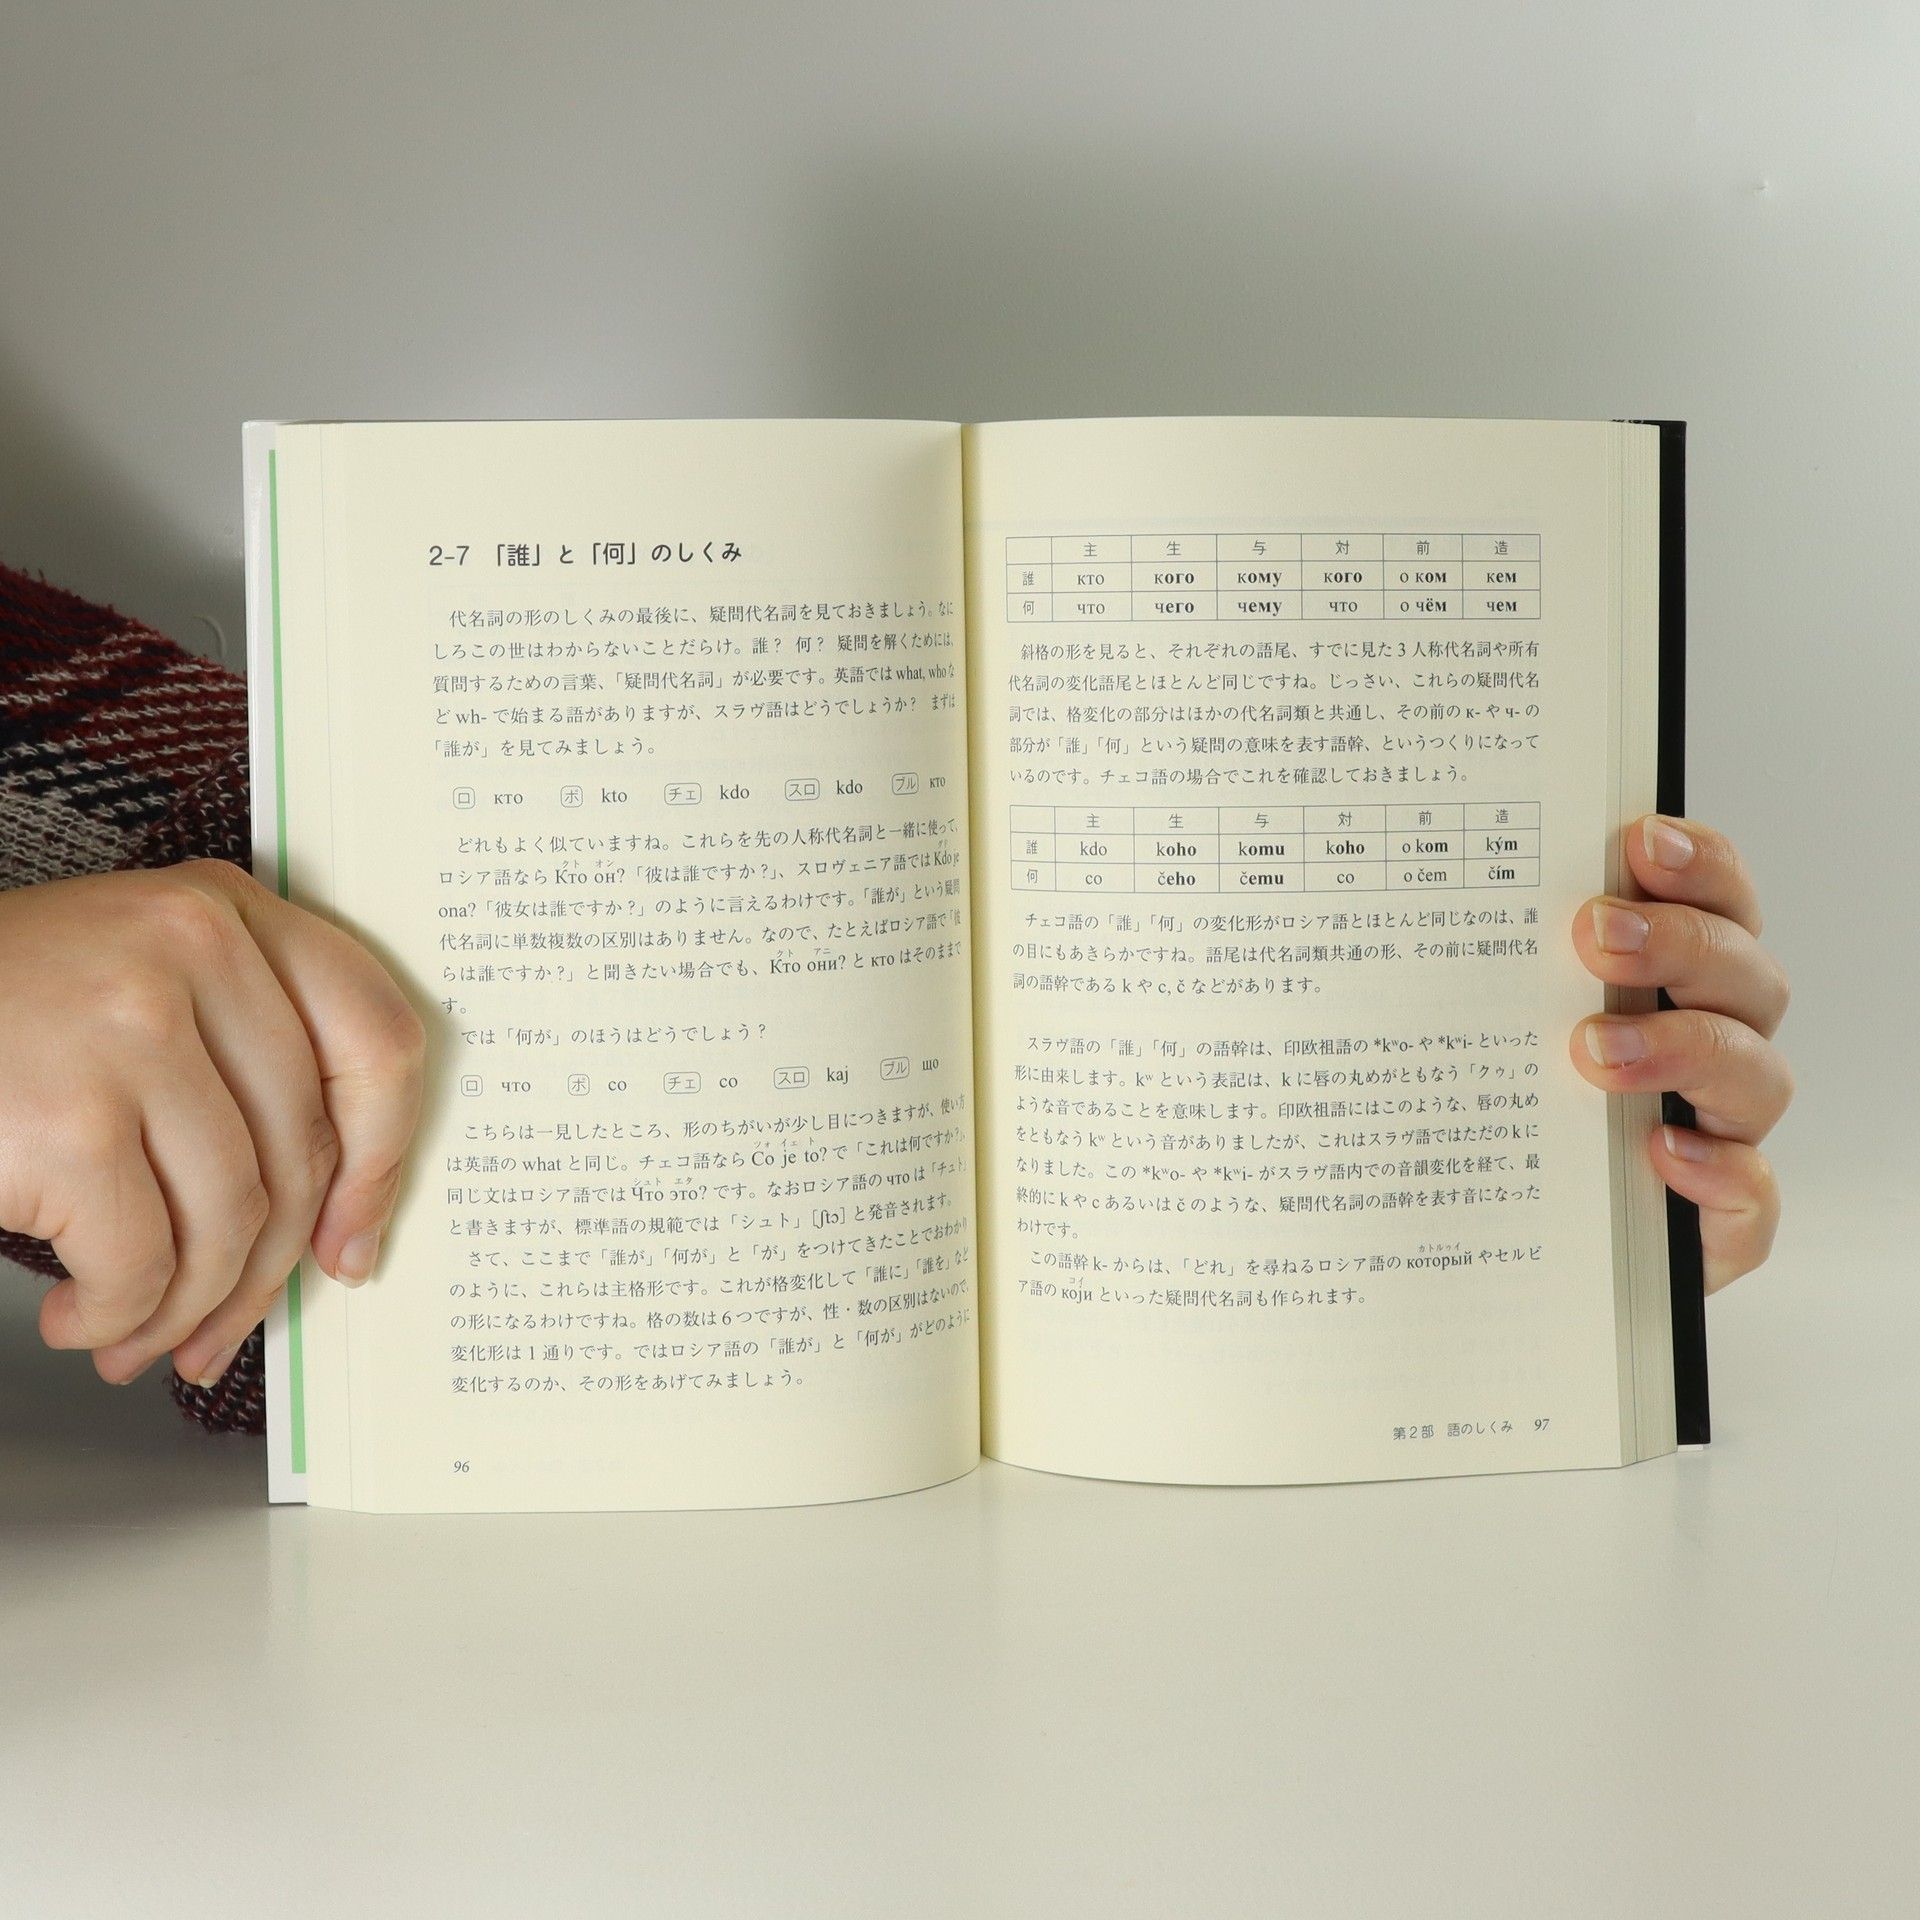 2–7 「誰」と「何」のしくみ
代名詞の形のしくみの最後に、疑問代名詞を見ておきましょう。なに
しろこの世はわからないことだらけ。誰? 何? 疑問を解くためには、
質問するための言葉、「疑問代名詞」が必要です。英語では what, who な
ど wh- で始まる語がありますが、スラヴ語はどうでしょうか? まずは
「誰が」を見てみましょう。
ロ кто ポ kto チェ kdo スロ kdo ブル кто
どれもよく似ていますね。これらを先の人称代名詞と一緒に使って、
クト オン グド
ロシア語なら Кто он?「彼は誰ですか?」、スロヴェニア語では Kdo je
ona?「彼女は誰ですか?」のように言えるわけです。「誰が」という疑問
代名詞に単数複数の区別はありません。なので、たとえばロシア語で「彼
クト アニ
らは誰ですか?」と聞きたい場合でも、Кто они? と кто はそのままで
す。
では「何が」のほうはどうでしょう?
ロ что ポ co チェ co スロ kaj ブル що
こちらは一見したところ、形のちがいが少し目につきますが、使い方
ツォ イェ ト
は英語の what と同じ。チェコ語なら Co je to? で「これは何ですか?」、
シュト エタ
同じ文はロシア語では Что это? です。なおロシア語の что は「チュト」
と書きますが、標準語の規範では「シュト」[ʃtɔ] と発音されます。
さて、ここまで「誰が」「何が」と「が」をつけてきたことでおわかり
のように、これらは主格形です。これが格変化して「誰に」「誰を」など
の形になるわけですね。格の数は 6 つですが、性・数の区別はないので、
変化形は 1 通りです。ではロシア語の「誰が」と「何が」がどのように
変化するのか、その形をあげてみましょう。
96
主 生 与 対 前 造
誰 кто кого кому кого о ком кем
何 что чего чему что о чём чем
斜格の形を見ると、それぞれの語尾、すでに見た 3 人称代名詞や所有
代名詞の変化語尾とほとんど同じですね。じっさい、これらの疑問代名
詞では、格変化の部分はほかの代名詞類と共通し、その前の к- や ч- の
部分が「誰」「何」という疑問の意味を表す語幹、というつくりになって
いるのです。チェコ語の場合でこれを確認しておきましょう。
主 生 与 対 前 造
誰 kdo koho komu koho o kom kým
何 co čeho čemu co o čem čím
チェコ語の「誰」「何」の変化形がロシア語とほとんど同じなのは、誰
の目にもあきらかですね。語尾は代名詞類共通の形、その前に疑問代名
詞の語幹である k や c, č などがあります。
スラヴ語の「誰」「何」の語幹は、印欧祖語の *kʷo- や *kʷi- といった
形に由来します。kʷ という表記は、k に唇の丸めがともなう「クゥ」の
ような音であることを意味します。印欧祖語にはこのような、唇の丸め
をともなう kʷ という音がありましたが、これはスラヴ語ではただの k に
なりました。この *kʷo- や *kʷi- がスラヴ語内での音韻変化を経て、最
終的に k や c あるいは č のような、疑問代名詞の語幹を表す音になった
わけです。
カトルゥイ
この語幹 k- からは、「どれ」を尋ねるロシア語の который やセルビ
コイ
ア語の који といった疑問代名詞も作られます。
第2部 語のしくみ 97